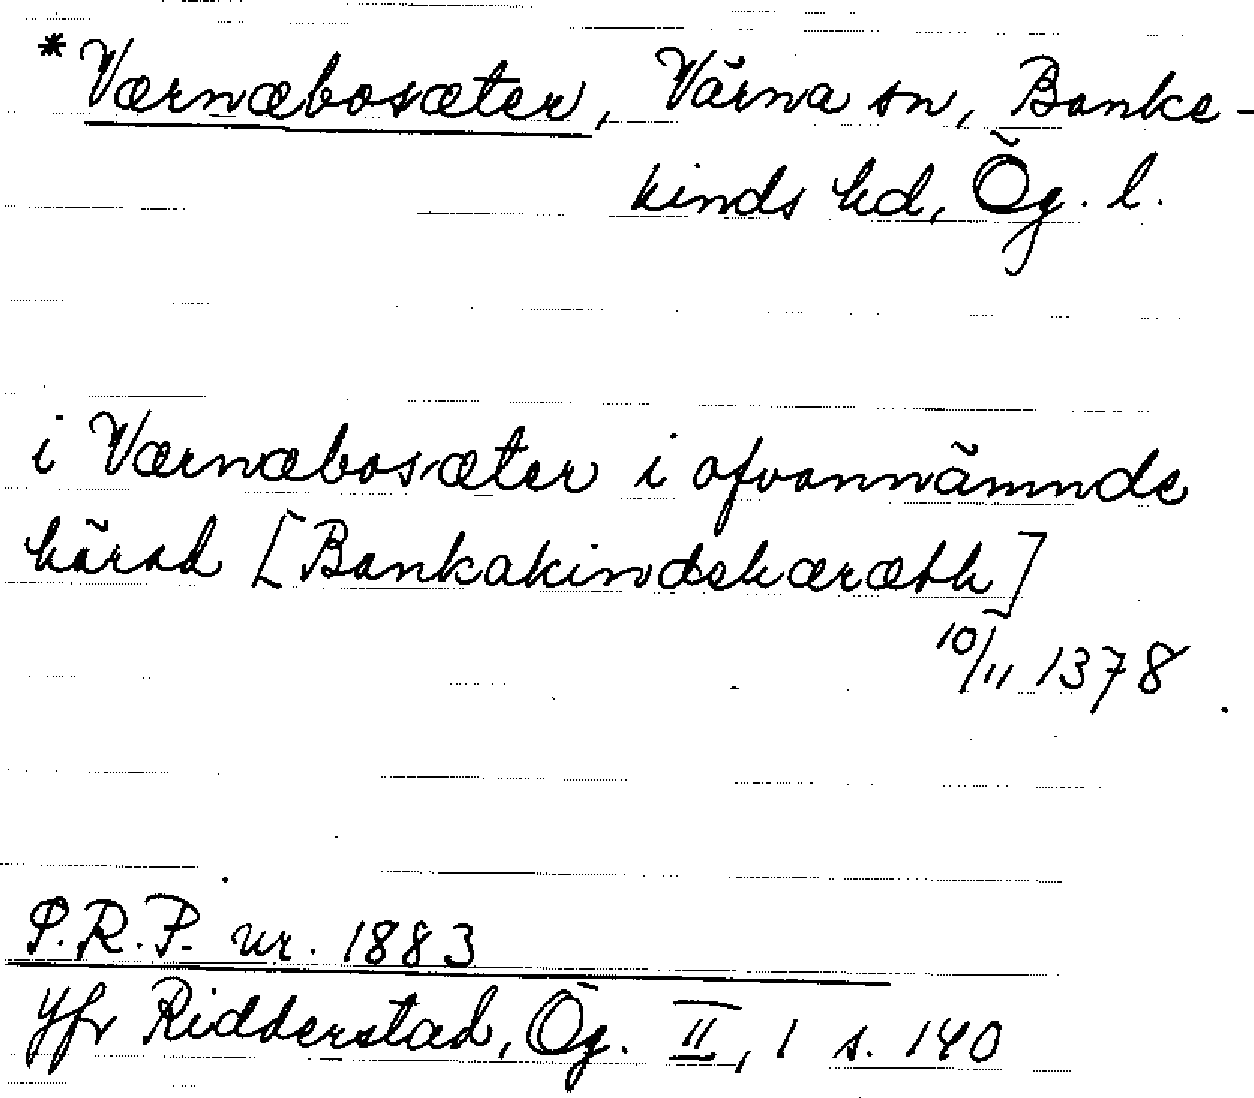 *Værnæbosæter, Värna sn, Banke-
kinds hd, Ög. l.
i Værnæbosæter i ofvannämnde
härad [Bankakindshæræth]
10/11 1378
S.R.P. nr. 1883
Jfr Ridderstad, Ög. II, 1 s. 140